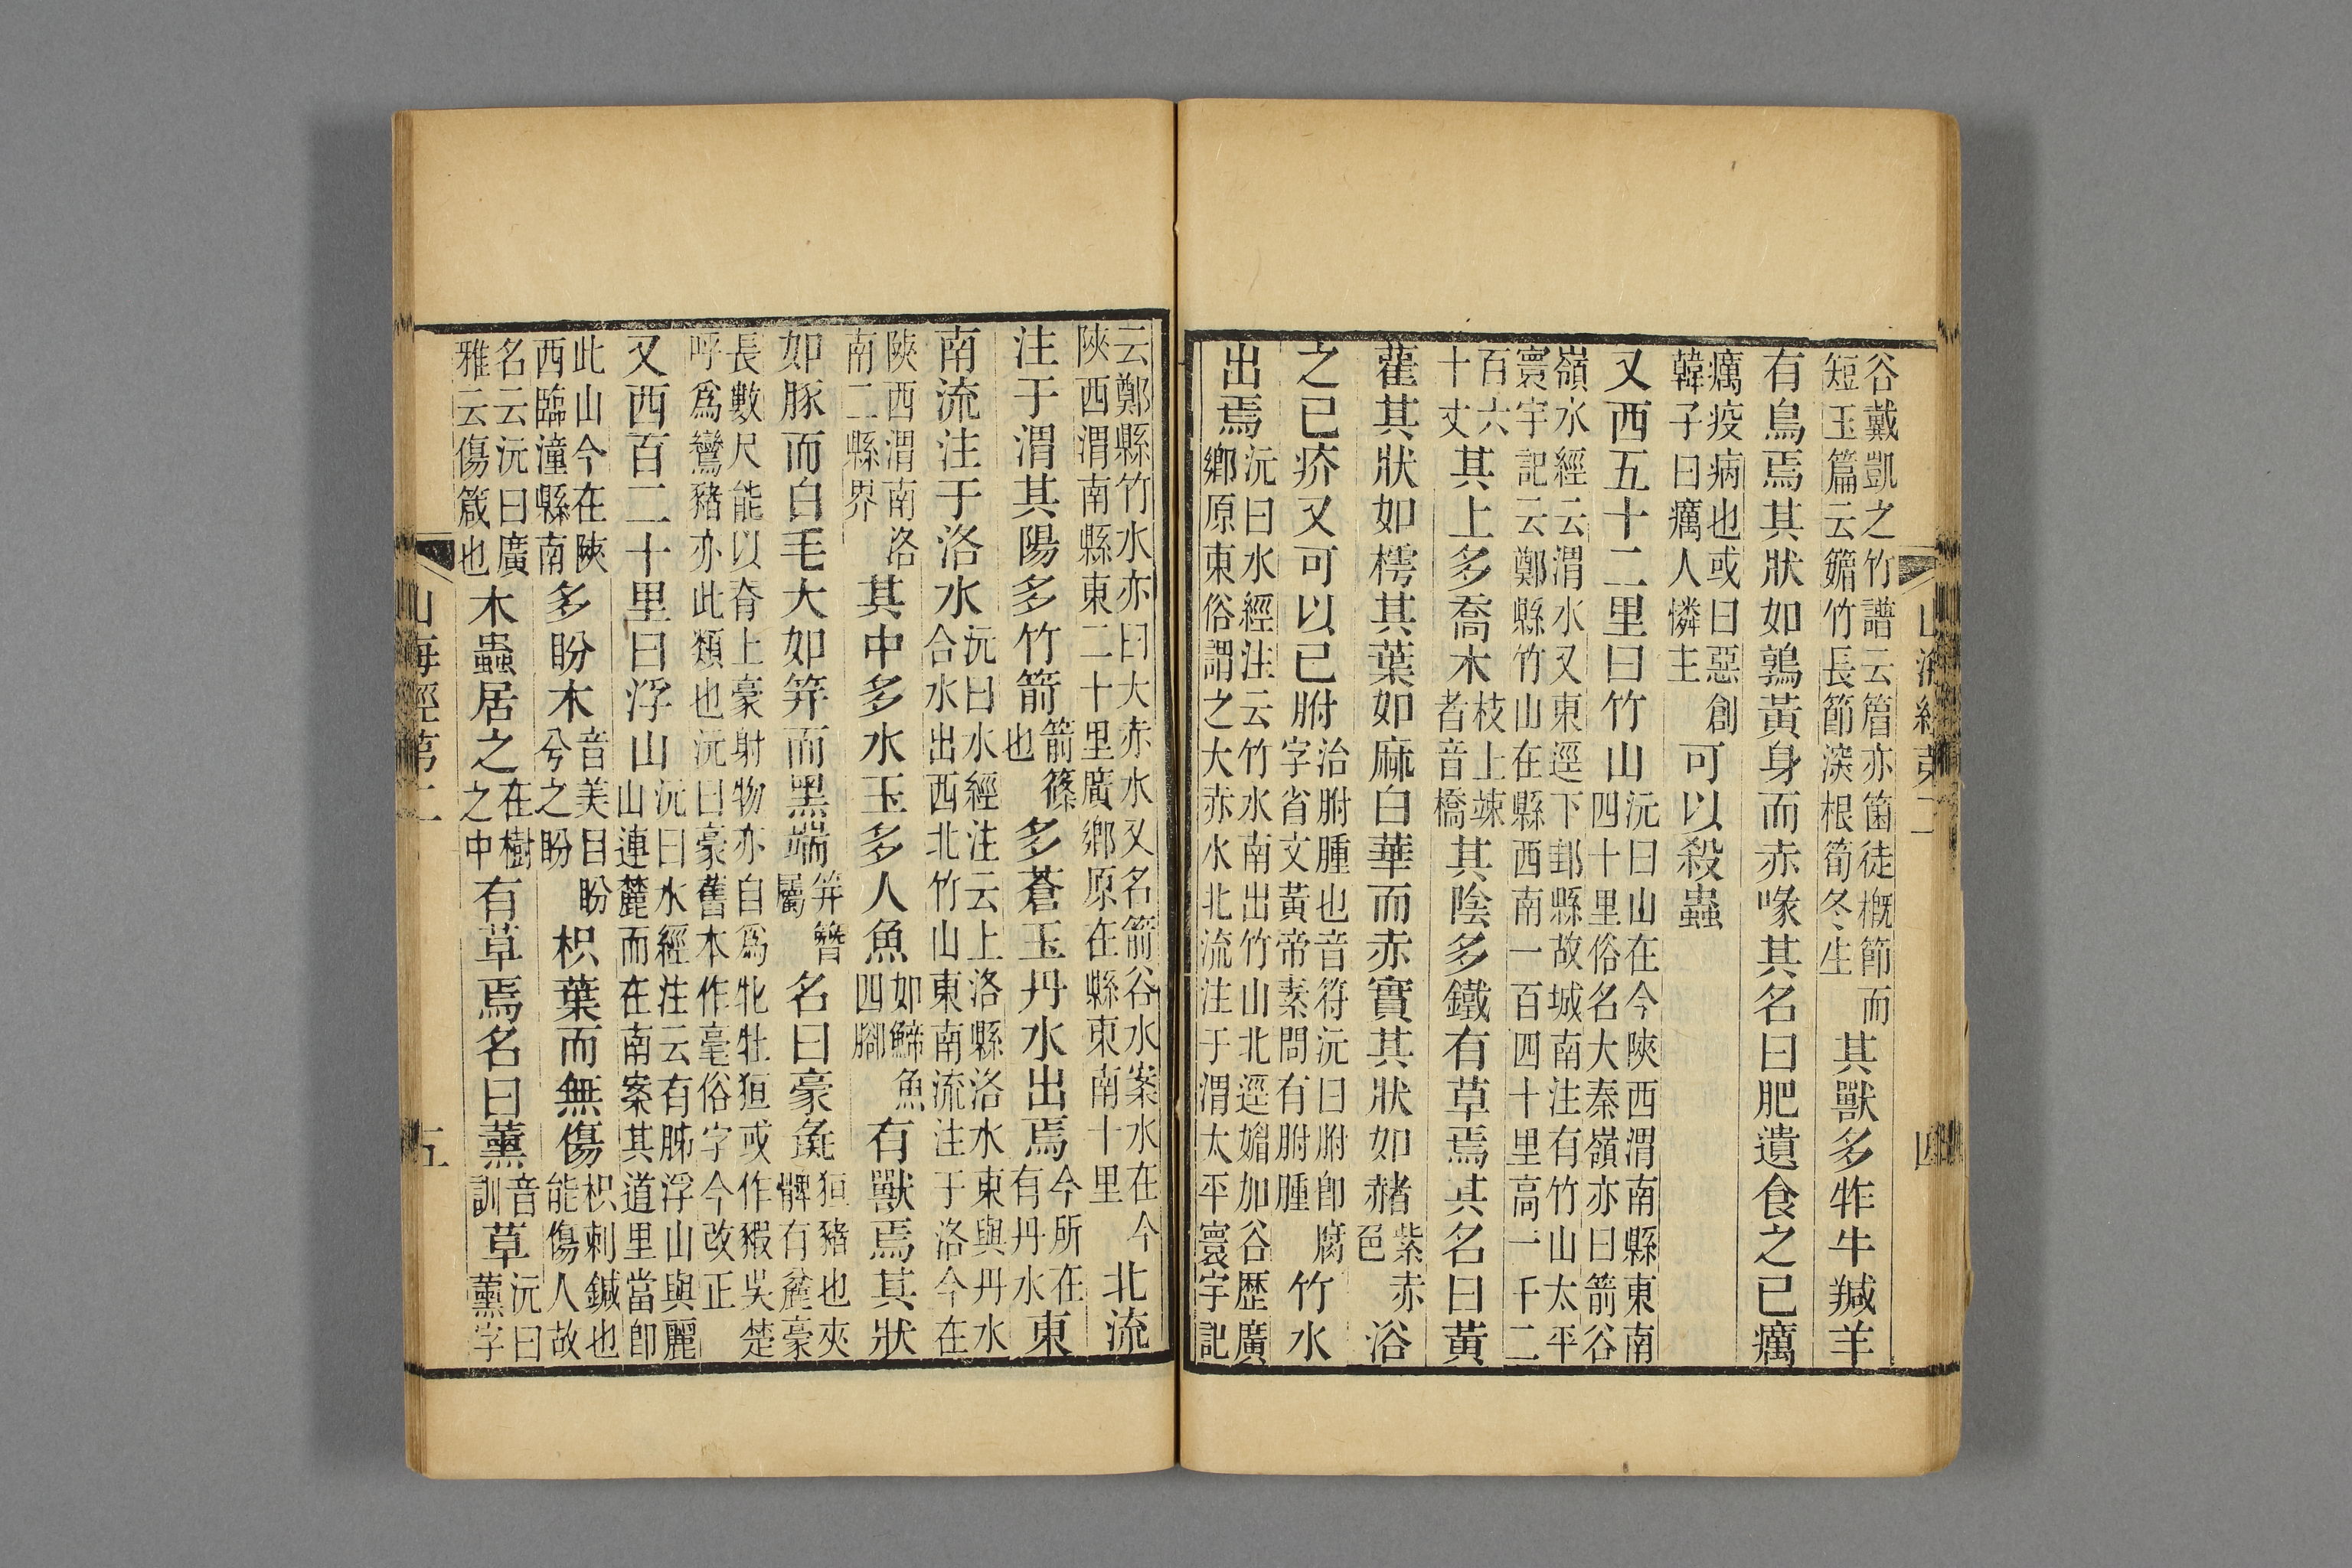 山海經第二 四
谷戴凱之竹譜云篃亦箘徒概節而短玉篇云䉋竹長節深根筍冬生其獸多㸲牛羬羊
有鳥焉其狀如鶉黃身而赤喙其名曰肥遺食之已癘
癘疫病也或曰惡創韓子曰癘人憐主可以殺蟲
又西五十二里曰竹山沅曰山在今陝西渭南縣東南四十里俗名大秦嶺亦曰箭谷
嶺水經云渭水又東逕下邽縣故城南注有竹山太平寰宇記云鄭縣竹山在縣西南一百四十里高一千二
百六十丈其上多喬木枝上竦者音橋其陰多鐵有草焉其名曰黃
雚其狀如樗其葉如麻白華而赤實其狀如赭紫赤色浴
之已疥又可以已胕治胕腫也音符沅曰胕卽腐字省文黃帝素問有胕腫竹水
出焉沅曰水經注云竹水南出竹山北逕媚加谷歷廣鄉原東俗謂之大赤水北流注于渭太平寰宇記
云鄭縣竹水亦曰大赤水又名箭谷水案水在今陝西渭南縣東二十里廣鄉原在縣東南十里北流
注于渭其陽多竹箭箭篠也多蒼玉丹水出焉今所在有丹水東
南流注于洛水沅曰水經注云上洛縣洛水東與丹水合水出西北竹山東南流注于洛今在
陝西渭南洛南二縣界其中多水玉多人魚如鯑魚四腳有獸焉其狀
如豚而白毛大如笄而黑端笄簪屬名曰豪彘狟豬也夾髀有麤豪
長數尺能以脊上豪射物亦自爲牝牡狟或作猳吳楚呼爲鸞豬亦此類也沅曰豪舊本作毫俗字今改正
又西百二十里曰浮山沅曰水經注云有肺浮山與麗山連麓而在南案其道里當卽
此山今在陝西臨潼縣南多盼木音美目盼兮之盼枳葉而無傷枳刺鍼也能傷人故
名云沅曰廣雅云傷箴也木蟲居之在樹之中有草焉名曰薰音訓草沅曰薰字
山海經第二 五